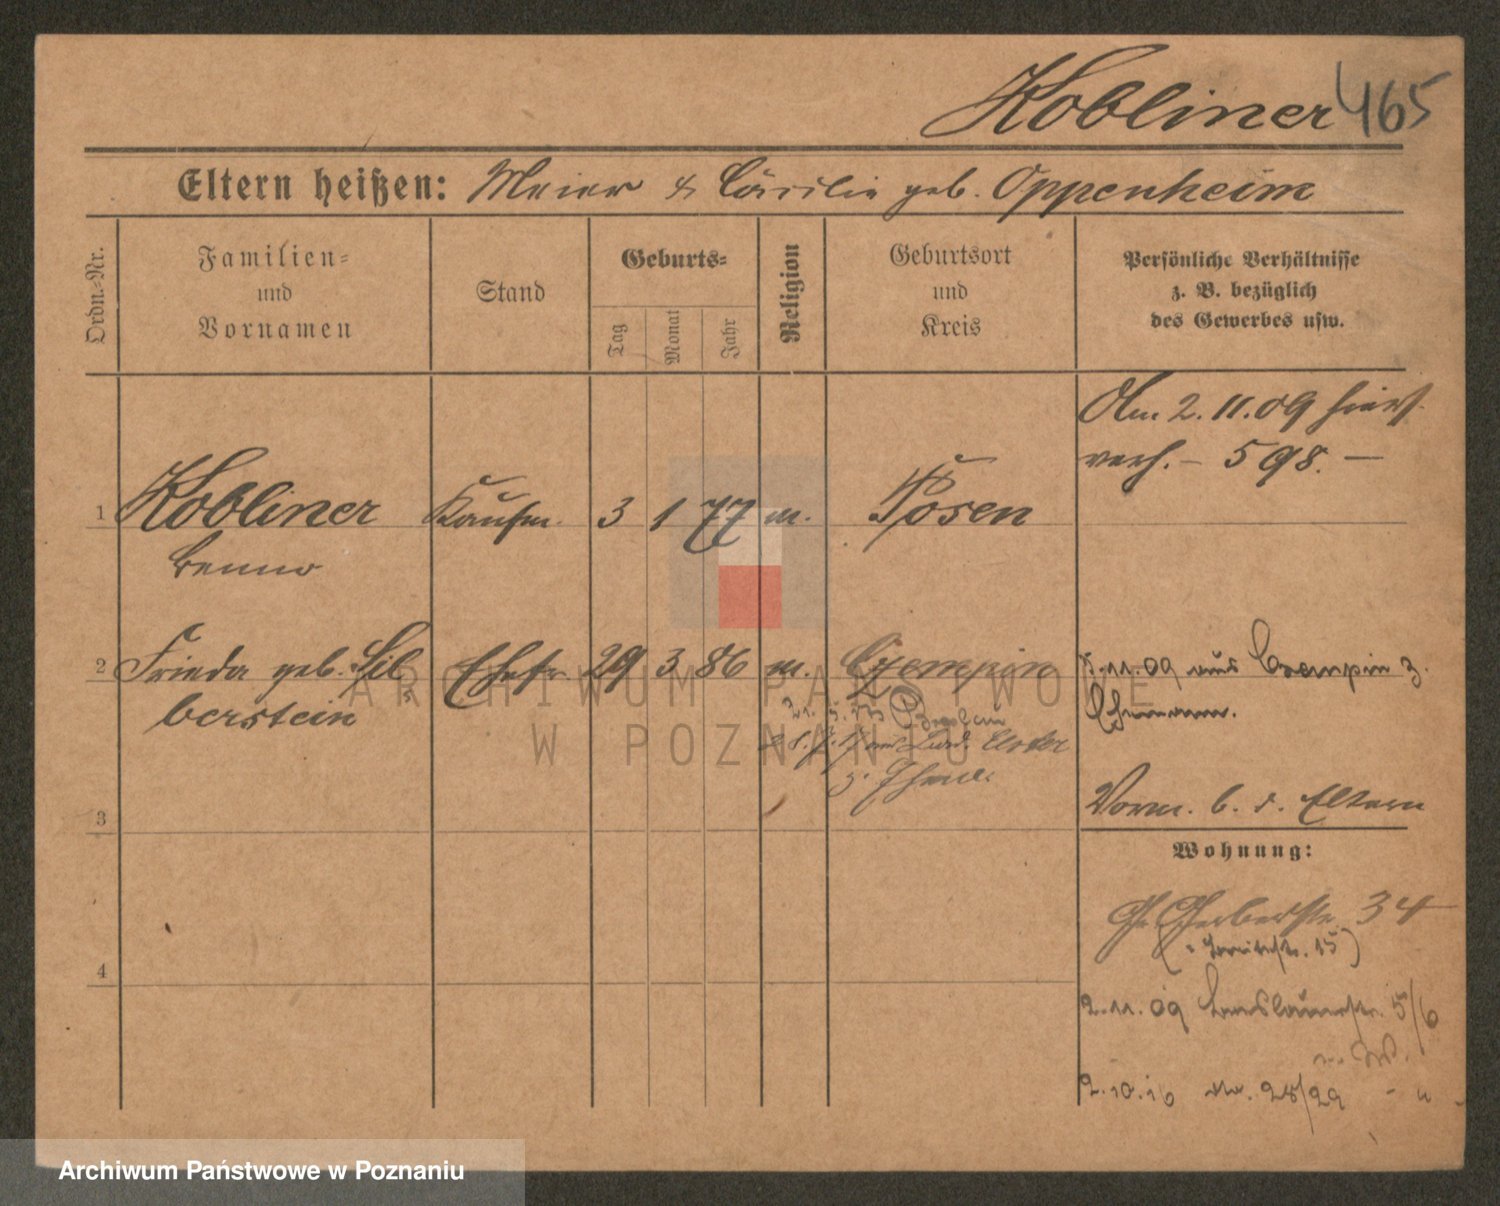 Kobliner 465
Eltern heißen: Meier & Cäcilie geb. Oppenheim
Ordn.-Nr.
Familien-
und
Vornamen
Stand
Geburts-
Tag
Monat
Jahr
Religion
Geburtsort
und
Kreis
Persönliche Verhältnisse
z. B. bezüglich
des Gewerbes usw.
Am 2.11.09 hier
verh. – 598. –
1 Kobliner Kaufm. 3 1 77 m. Posen
Benno
2 Frieda geb. Sil Ehefr. 29 3 86 m. Czempin
berstein
.11.09 aus Czempin z.
Ehemann.
z. Ehem.
3
Vorm. b. d. Eltern
Wohnung:
Gr. Gerberstr. 34
15)
4
2.11.09 5/6
2.10.10 No. 28/29 - " -
ARCHIWUM PAŃSTWOWE
W POZNANIU
Archiwum Państwowe w Poznaniu